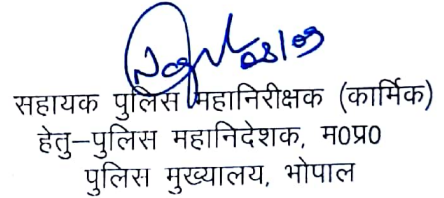 08/09
सहायक पुलिस महानिरीक्षक (कार्मिक)
हेतु–पुलिस महानिदेशक, म0प्र0
पुलिस मुख्यालय, भोपाल